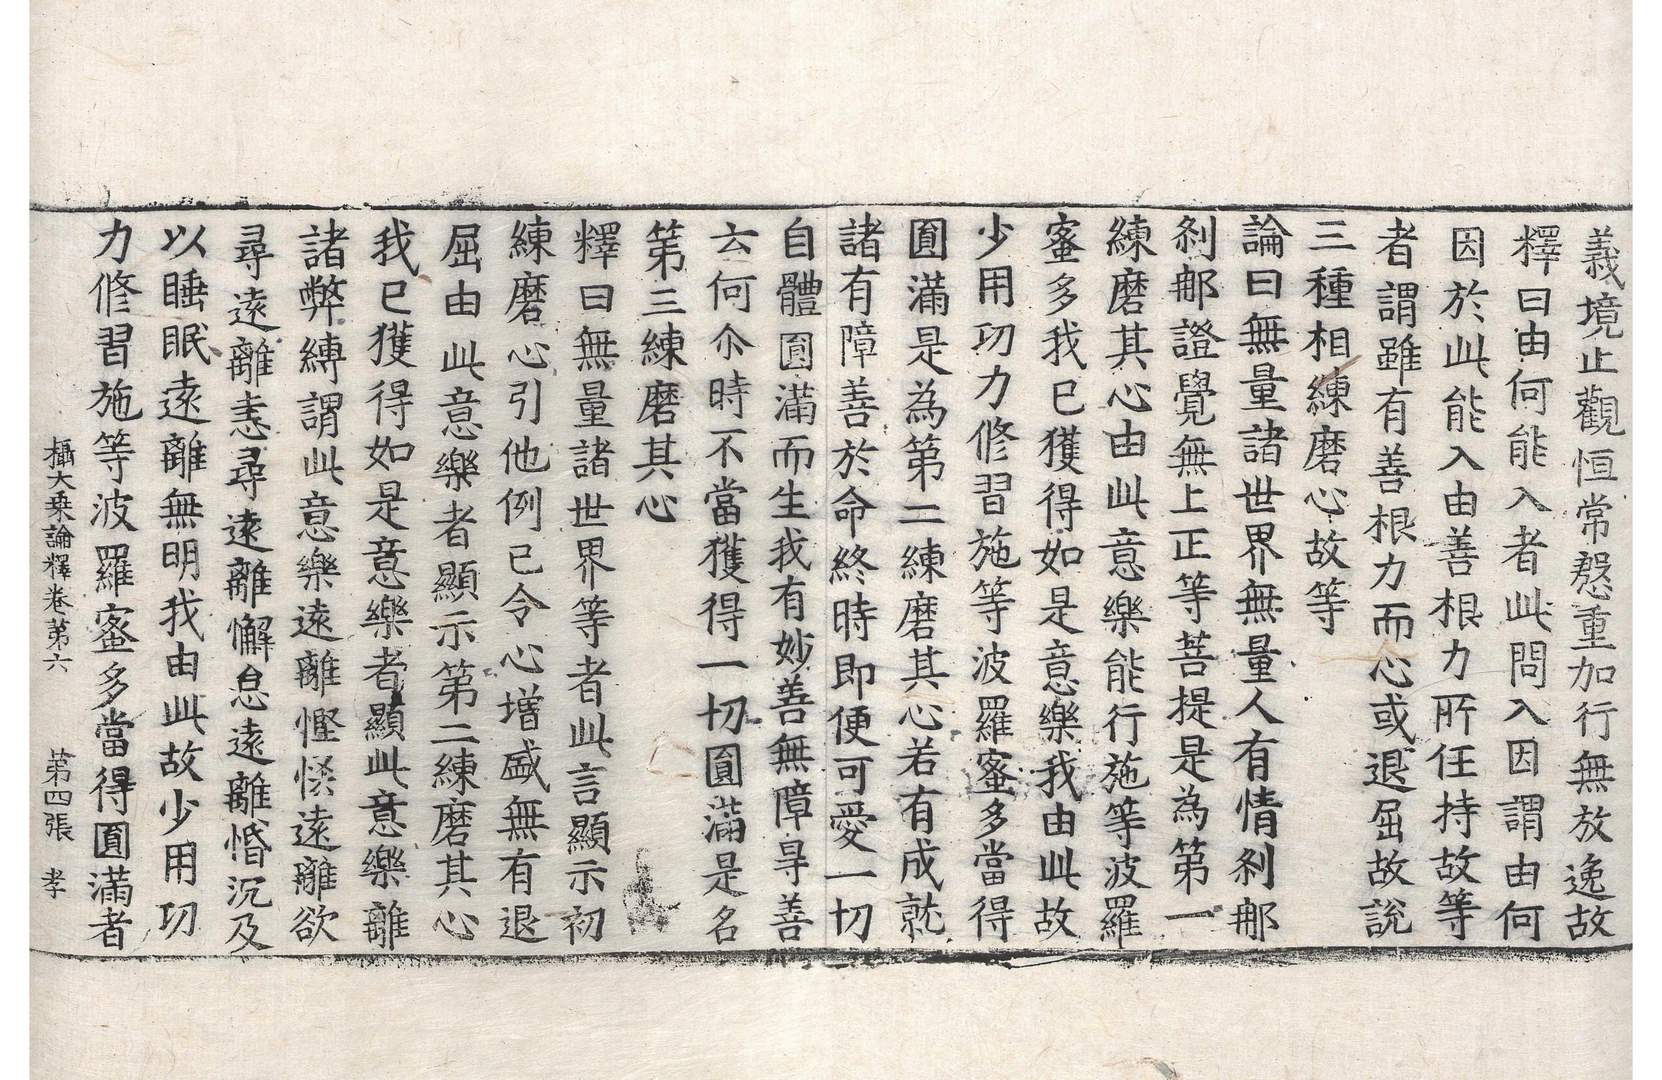 義境止觀恒常慇重加行無放逸故
釋曰由何能入者此問入因謂由何
因於此能入由善根力所任持故等
者謂雖有善根力而心或退屈故說
三種相練磨心故等
論曰無量諸世界無量人有情刹𨚗
刹𨚗證覺無上正等菩提是為第一
練磨其心由此意樂能行施等波羅
蜜多我已獲得如是意樂我由此故
少用功力修習施等波羅蜜多當得
圓滿是為第二練磨其心若有成就
諸有障善於命終時即便可愛一切
自體圓滿而生我有妙善無障㝵善
云何尒時不當獲得一切圓滿是名
第三練磨其心
釋曰無量諸世界等者此言顯示初
練磨心引他例已令心增盛無有退
屈由此意樂者顯示第二練磨其心
我已獲得如是意樂者顯此意樂離
諸弊縛謂此意樂遠離慳悋遠離欲
尋遠離恚尋遠離懈怠遠離惛沉及
以睡眠遠離無明我由此故少用功
力修習施等波羅蜜多當得圓滿者
攝大乘論釋卷第六　第四張　孝